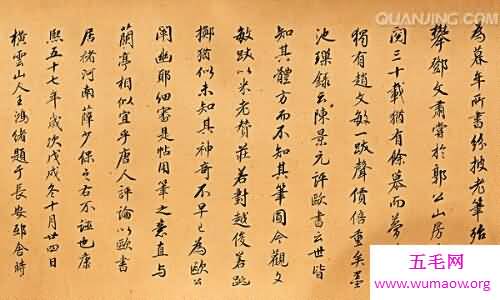 為暮年所書紛披老筆殆
攀鄧文肅嘗於郭公山房
閱三十載猶有餘慕而夢
獨有趙文敏一跋聲價倍重矣墨
池璅錄云陳景元評歐書云世皆
知其體方而不知其筆圓今觀文
敏跋以米老贊莊若對越俊若跳
擲猶似未知其神奇不早已為歐公
闡幽耶細審是帖用筆之意直与
蘭亭相似宜乎唐人評論以歐書
居褚河南薛少保之右不誣也康
熙五十七年歲次戊戌冬十月廿四日
橫雲山人王鴻緒題于長安邸舍時
QUANJING.COM
五毛网
www.wumaow.org